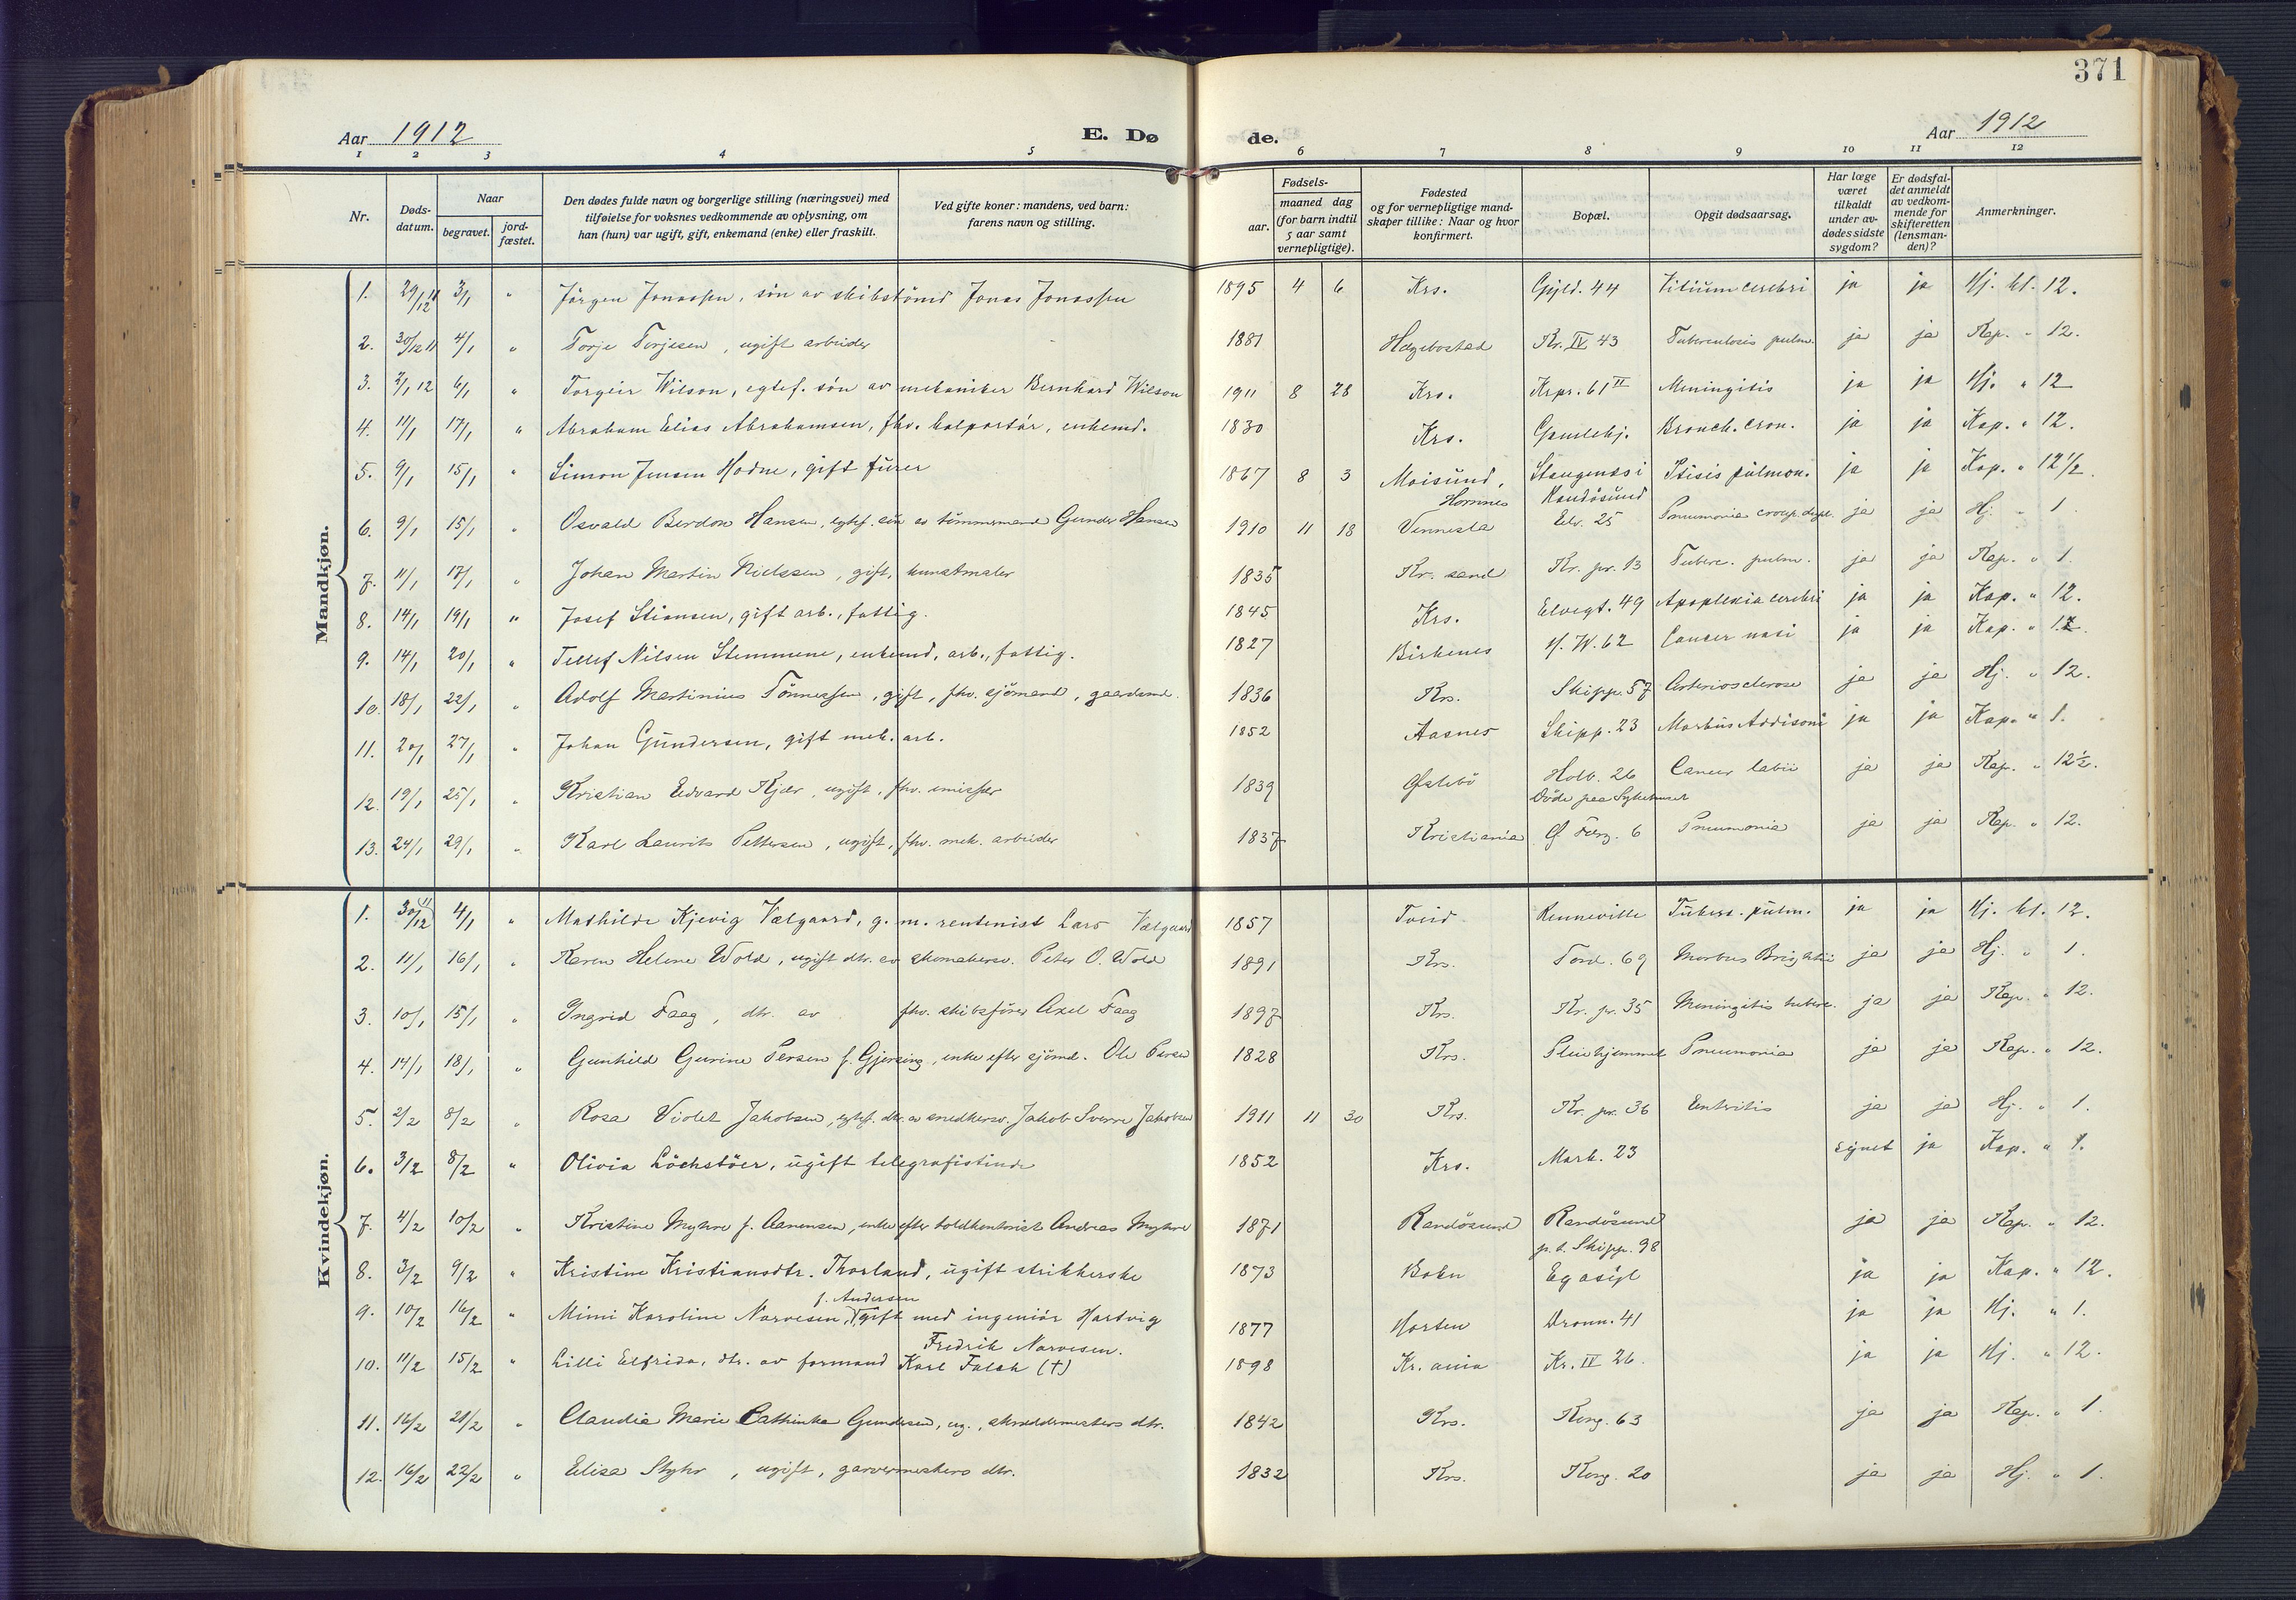 371
Aar 1912
E. Dø
de.
Aar 1912
1 2 3 4 5 6 7 8 9 10 11 12
Nr.
Døds-datum.
Naar
begravet.
jord-fæstet.
Den dødes fulde navn og borgerlige stilling (næringsvei) med
tilføielse for voksnes vedkommende av oplysning, om
han (hun) var ugift, gift, enkemand (enke) eller fraskilt.
Ved gifte koner: mandens, ved barn:
farens navn og stilling.
Fødsels-
aar.
maaned dag
(for barn indtil
5 aar samt
vernepligtige).
Fødested
og for vernepligtige mand-
skaper tillike: Naar og hvor
konfirmert.
Bopæl.
Opgit dødsaarsag.
Har læge
været
tilkaldt
under av-
dødes sidste
sygdom?
Er dødsfal-
det anmeldt
av vedkom-
mende for
skifteretten
(lensman-
den)?
Anmerkninger.
Mandkjøn.
1. 29/12 11 3/1 " Jörgen Jonassen, sön av skibstömd Jonas Jonassen 1895 4 6 Krs. Gyld. 44 Vitium cerebri ja ja Hj. kl. 12.
2. 30/12 11 4/1 " Torje Torjesen, ugift arbeider 1881 Hægebostad Kr. IV 43 Tuberculosis pulm. ja ja Kap. " 12.
3. 2/1 12 6/1 " Torgeir Wilson, egtef. sön av mekaniker Bernhard Wilson 1911 8 28 Krs. Krpr. 61 II Meningitis ja ja Hj. " 12
4. 11/1 17/1 " Abraham Elias Abrahamsen, fhv. kolportör, enkemd. 1830 Krs. Gamlehj. Bronch. cron. ja ja Kap. " 12.
5. 9/1 15/1 " Simon Jensen Hodne, gift fürer 1867 8 3 Moisund, Hornnes Stangenes i Randösund Ptisis pulmon. ja ja Kap. " 12 1/2.
6. 9/1 15/1 " Osvald Berdon Hansen, egtef. sön av tömmermand Gunder Hansen 1910 11 18 Vennesla Elv. 25 Pneumonia croup. dupl. ja ja Hj. " 1
7. 11/1 17/1 " Johan Martin Nielssen, gift, kunstmaler 1835 Kr. sand Kr. pr. 13 Tuberc. pulm. ja ja Kap. " 1.
8. 14/1 19/1 " Josef Stiansen, gift arb., fattig. 1845 Krs. Elvegt. 49 Apoplexia cerebri ja ja Kap. " 12.
9. 14/1 20/1 " Tellef Nilsen Stemmene, enkemd, arb., fattig. 1827 Birkenes H. W. 62 Cancer nasi ja ja Kap. " 12.
10. 18/1 22/1 " Adolf Martinius Tönnessen, gift, fhv. sjömand, gaardmd. 1836 Krs. Skipp. 57 Arteriosclerose ja ja Hj. " 12.
11. 20/1 27/1 " Johan Gundersen, gift mek. arb. 1852 Aasnes Skipp. 23 Morbus Addisoni ja ja Kap. " 1.
12. 19/1 25/1 " Kristian Edvard Kjær, ugift, fhv. emissær 1839 Øslebö Holb. 26 Döde paa Sykehuset Cancer labii ja ja Kap. " 12 1/2.
13. 24/1 29/1 " Karl Laurits Pettersen, ugift, fhv. mek. arbeider 1837 Kristiania Ø. Færg. 6 Pneumonia ja ja Kap. " 12.
Kvindekjøn.
1. 30/12 11 4/1 " Mathilde Kjevig Vælgaard, g. m. rentenist Lars Vælgaard 1857 Tveid Renneville Tuberc. pulm. ja ja Hj. kl. 12.
2. 11/1 16/1 " Karen Helene Wold, ugift dtr. av skomakersv. Peter O. Wold 1891 Krs. Tord. 69 Morbus Brightii ja ja Hj. " 1.
3. 10/1 15/1 " Ingrid Faag, dtr. av fhv. skibsförer Axel Faag 1897 Krs. Kr. pr. 35 Meningitis tuberc. ja ja Kap. " 12.
4. 14/1 18/1 " Gunhild Gurine Persen f. Gjersing, enke efter sjömd. Ole Persen 1828 Krs. Pleiehjemmet Pneumonia ja ja Kap. " 12.
5. 2/2 8/2 " Rosa Violet Jakobsen, egtef. dtr. av snedkersv. Jakob Sverre Jakobsen 1911 11 30 Krs. Kr. pr. 36 Enteritis ja ja Hj. " 1.
6. 3/2 8/2 " Olivia Löchstöer, ugift telegrafistinde 1852 Krs. Mark. 23 synet ja Kap. " 1.
7. 4/2 10/2 " Kristine Myhre f. Aanensen, enke efter toldkontorist Andreas Myhre 1871 Randösund Randösund p. t. Skipp. 98 ja ja Kap. " 12.
8. 3/2 9/2 " Kristine Kristiansdtr. Thorland, ugift strikkerske 1873 Bokn Eg asyl ja ja Kap. " 12.
9. 10/2 16/2 " Mimi Karoline Narvesen, f. Andersen gift med ingeniör Hartvig Fredrik Narvesen. 1877 Horten Dronn. 41 ja ja Hj. " 1.
10. 11/2 15/2 " Lilli Elfrida, dtr. av formand Karl Falch (†) 1898 Kr. ania Kr. IV 26. ja ja Hj. " 12.
11. 16/2 21/2 " Claudia Marie Cathinka Gundersen, ug., skreddermesters dtr. 1842 Krs. Kong. 63 ja ja Kap. " 1.
12. 16/2 22/2 " Elisa Styhr, ugift, garvermesters dtr. 1832 Krs. Kong. 20 ja ja Hj. " 1.